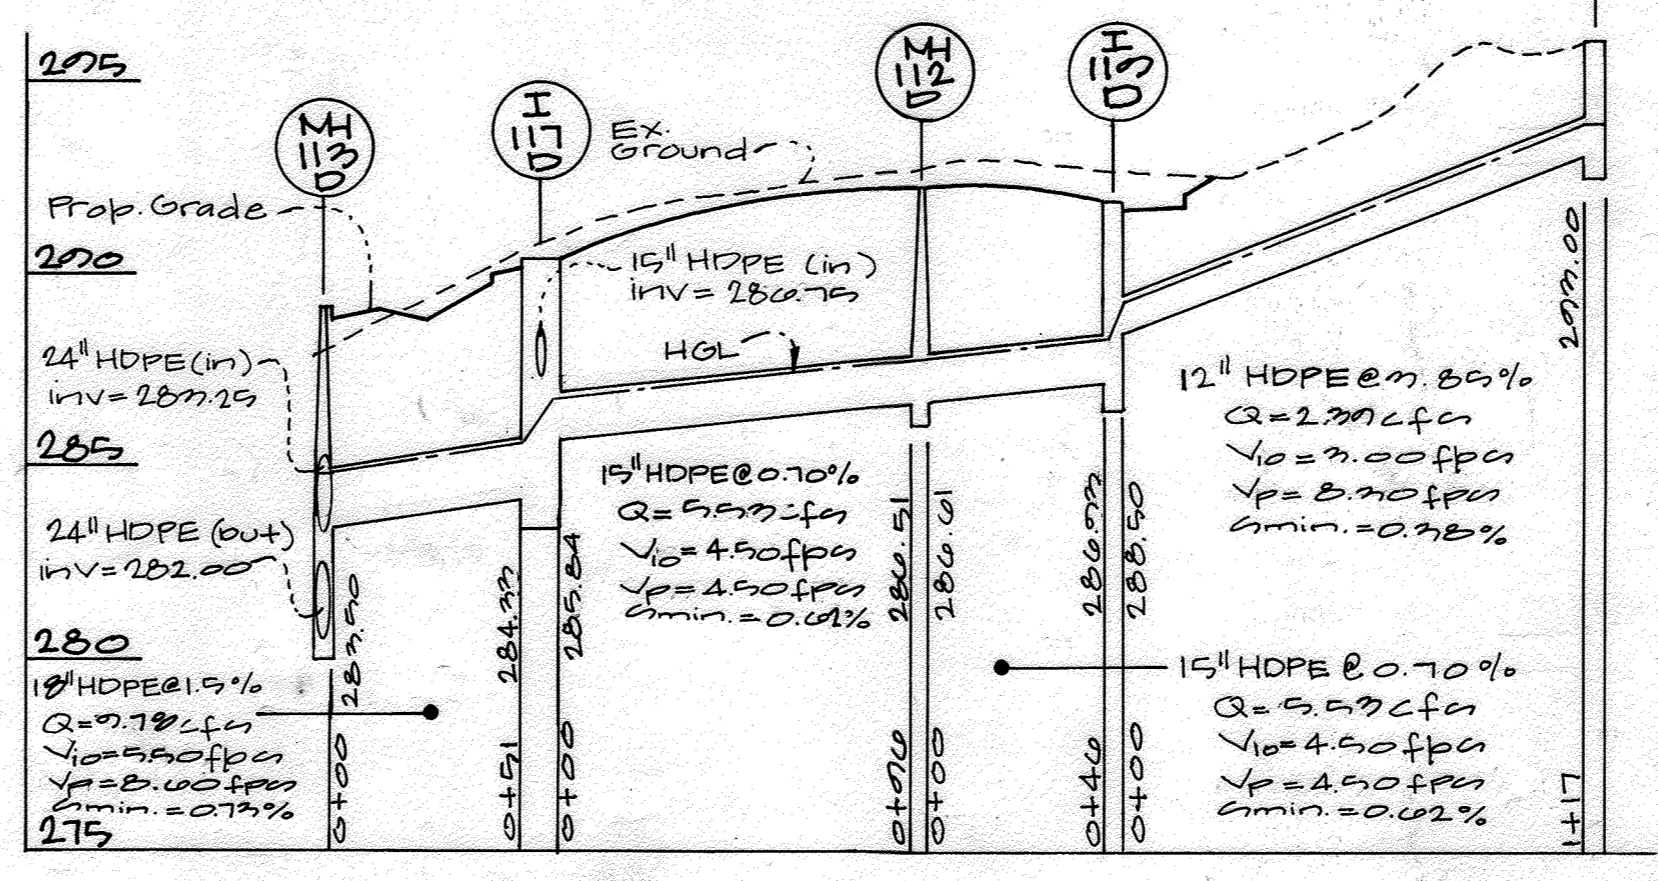 295
MH
113
D
I
117
D
Ex.
Ground
MH
112
D
I
115
D
Prop. Grade
290
15" HDPE (in)
inv= 286.75
HGL
24" HDPE (in)
inv= 283.25
285
24" HDPE (out)
inv= 282.00
280
18" HDPE@1.5%
Q=9.78cfs
Vio=5.50fps
Vp=8.60fps
smin.=0.73%
275
15" HDPE@0.70%
Q=5.53cfs
Vio=4.50fps
Vp=4.50fps
smin.=0.62%
12" HDPE@3.85%
Q=2.39cfs
Vio=3.00fps
Vp=8.30fps
smin.=0.38%
15" HDPE@0.70%
Q=5.53cfs
Vio=4.50fps
Vp=4.50fps
smin.=0.62%
283.50
284.33
285.84
286.51
286.61
286.93
288.50
293.00
0+00
0+51
0+00
0+96
0+00
0+46
0+00
1+17